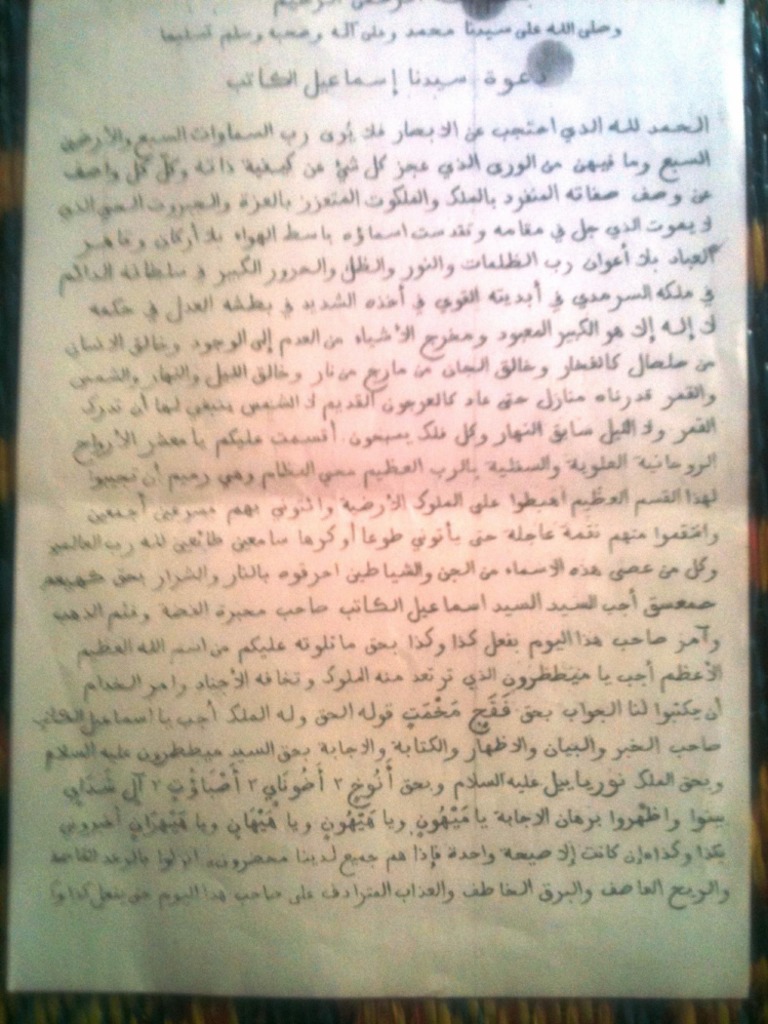 الرحمن الرحيم
وصلى الله على سيدنا محمد وعلى آله وصحبه وسلم تسليما
دعوة سيدنا إسماعيل الكاتب
الحمد لله الذي احتجب عن الابصار فلا يُرى رب السماوات السبع والأرضين
السبع وما فيهن من الورى الذي عجز كل شئ عن كيفية ذاته وكل كل واصف
عن وصف صفاته المنفرد بالملك والملكوت المتعزز بالعزة والجبروت الحي الذي
لا يموت الذي جل في مقامه وتقدست اسماؤه باسط الهواء بلا أركان وقاهر
العباد بلا أعوان رب الظلمات والنور والظل والحرور الكبير في سلطانه الدائم
في ملكه السرمدي في أبديته القوي في أخذه الشديد في بطشه العدل في حكمه
لا إله إلا هو الكبير المعبود ومخرج الأشياء من العدم إلى الوجود وخالق الانسان
من صلصال كالفخار وخالق الجان من مارج من نار وخالق الليل والنهار والشمس
والقمر قدرناه منازل حتى عاد كالعرجون القديم لا الشمس ينبغي لها أن تدرك
القمر ولا الليل سابق النهار وكل في فلك يسبحون. أقسمت عليكم يا معشر الأرواح
الروحانية العلوية والسفلية بالرب العظيم محي العظام وهي رميم أن تجيبوا
لهذا القسم العظيم اهبطوا على الملوك الأرضية وائتوني بهم مسرعين أجمعين
وانتقموا منهم نقمة عاجلة حتى يأتوني طوعا أو كرها سامعين طائعين لله رب العالمين
وكل من عصى هذه الاسماء من الجن والشياطين احرقوه بالنار والشرار بحق كهيعص
حمعسق أجب السيد السيد اسماعيل الكاتب صاحب محبرة الفضة وقلم الذهب
وآمر صاحب هذا اليوم بفعل كذا وكذا بحق ما تلوته عليكم من اسم الله العظيم
الأعظم أجب يا ميططرون الذي ترتعد منه الملوك وتخافه الأجناد وامر الخدام
أن يكتبوا لنا الجواب بحق فَقَجٍ مَخْمَتٍ قوله الحق وله الملك أجب يا اسماعيل الكاتب
صاحب الخبر والبيان والاظهار والكتابة والاجابة بحق السيد ميططرون عليه السلام
وبحق الملك نورياييل عليه السلام وبحق أَنُوخٍ ٢ أَضُونَايٍ ٢ أَصْبَاؤُتٍ ٢ آلِ شَدَايٍ
بينوا واظهروا برهان الاجابة يا مَيْهُونٍ ويا هَيْهُونٍ ويا هَيْهَانٍ ويا هَيْهَرَانٍ أخبروني
بكذا وكذا إن كانت إلا صيحة واحدة فإذا هم جميع لدينا محضرون. انزلوا بالرعد القاصف
والريح العاصف والبرق الخاطف والعذاب المترادف على صاحب هذا اليوم حتى يفعل كذا